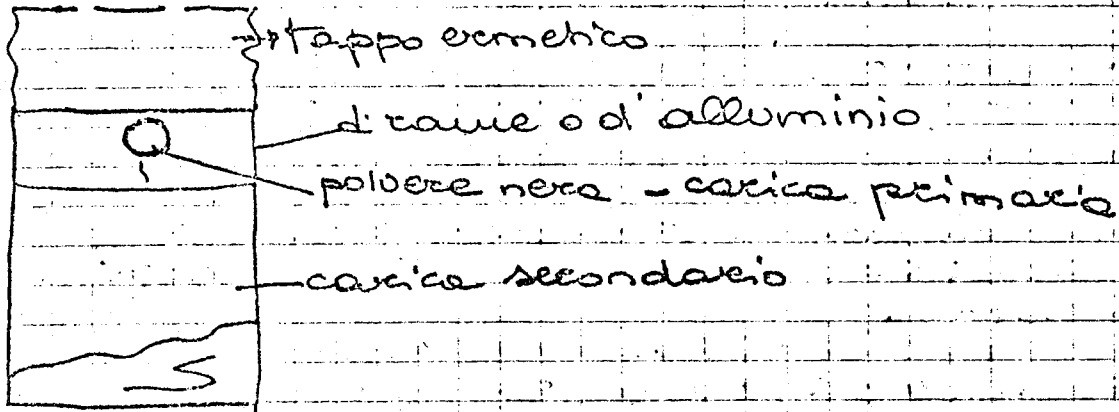 tappo ermetico
di rame o d'alluminio
polvere nera - carica primaria
carica secondario